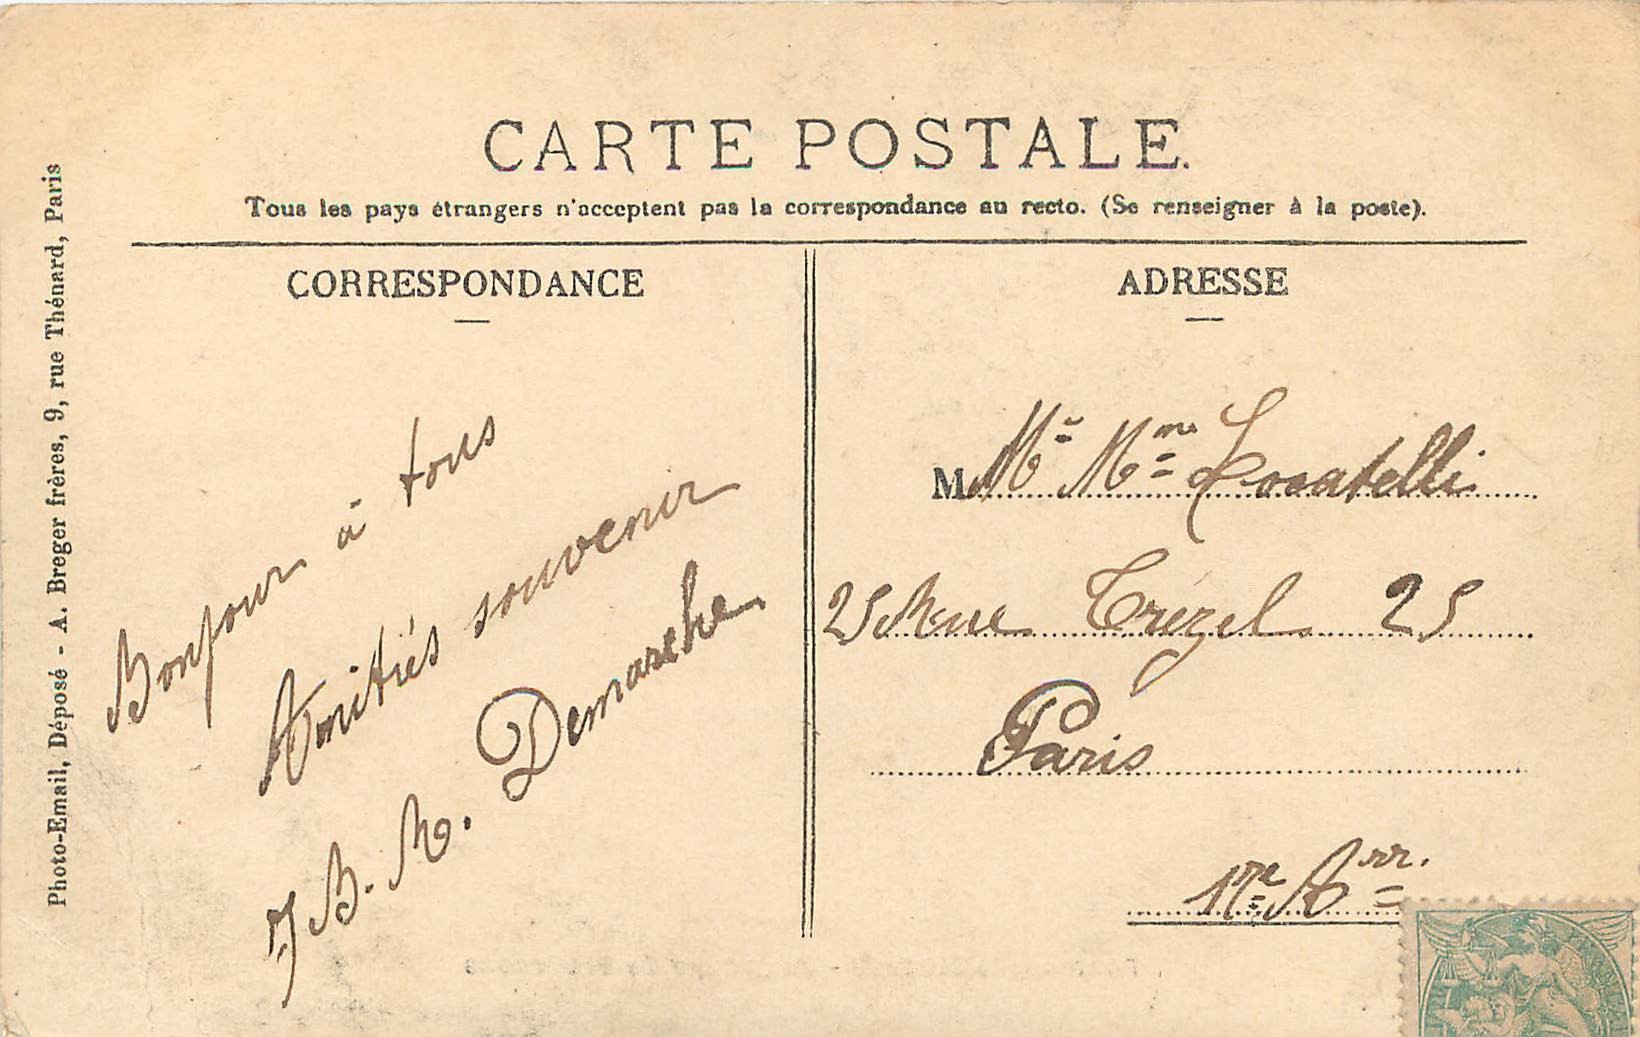 CARTE POSTALE.
Tous les pays étrangers n'acceptent pas la correspondance au recto. (Se renseigner à la poste).
Photo-Email, Déposé - A. Breger frères, 9, rue Thénard, Paris
CORRESPONDANCE
Bonjour à tous
Amitiés souvenir
J B. M. Demarche
ADRESSE
M Mr Mme Locatelli
25 Rue Trézel 25
Paris
1re Arr.